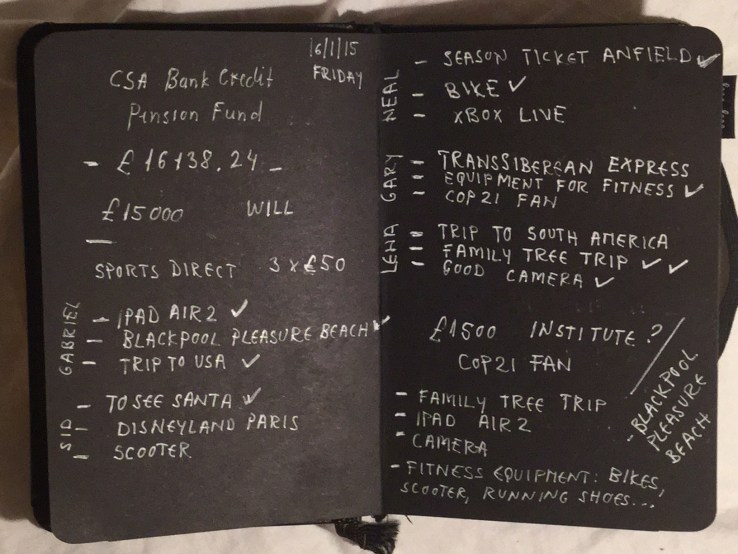 16/1/15
FRIDAY
CSA Bank Credit
Pension Fund
- £16138.24 -
£15000 WILL
SPORTS DIRECT 3 x £50
GABRIEL
- IPAD AIR 2 ✓
- BLACKPOOL PLEASURE BEACH ✓
- TRIP TO USA ✓
SID
- TO SEE SANTA ✓
- DISNEYLAND PARIS
- SCOOTER
NEAL
- SEASON TICKET ANFIELD ✓
- BIKE ✓
- XBOX LIVE
GARY
- TRANSSIBEREAN EXPRESS
- EQUIPMENT FOR FITNESS ✓
- COP21 FAN
LENA
- TRIP TO SOUTH AMERICA
- FAMILY TREE TRIP ✓ ✓
- GOOD CAMERA ✓
£1500 INSTITUTE?
COP21 FAN
- FAMILY TREE TRIP
- IPAD AIR 2
- CAMERA
- FITNESS EQUIPMENT: BIKES,
SCOOTER, RUNNING SHOES...
- BLACKPOOL
PLEASURE
BEACH